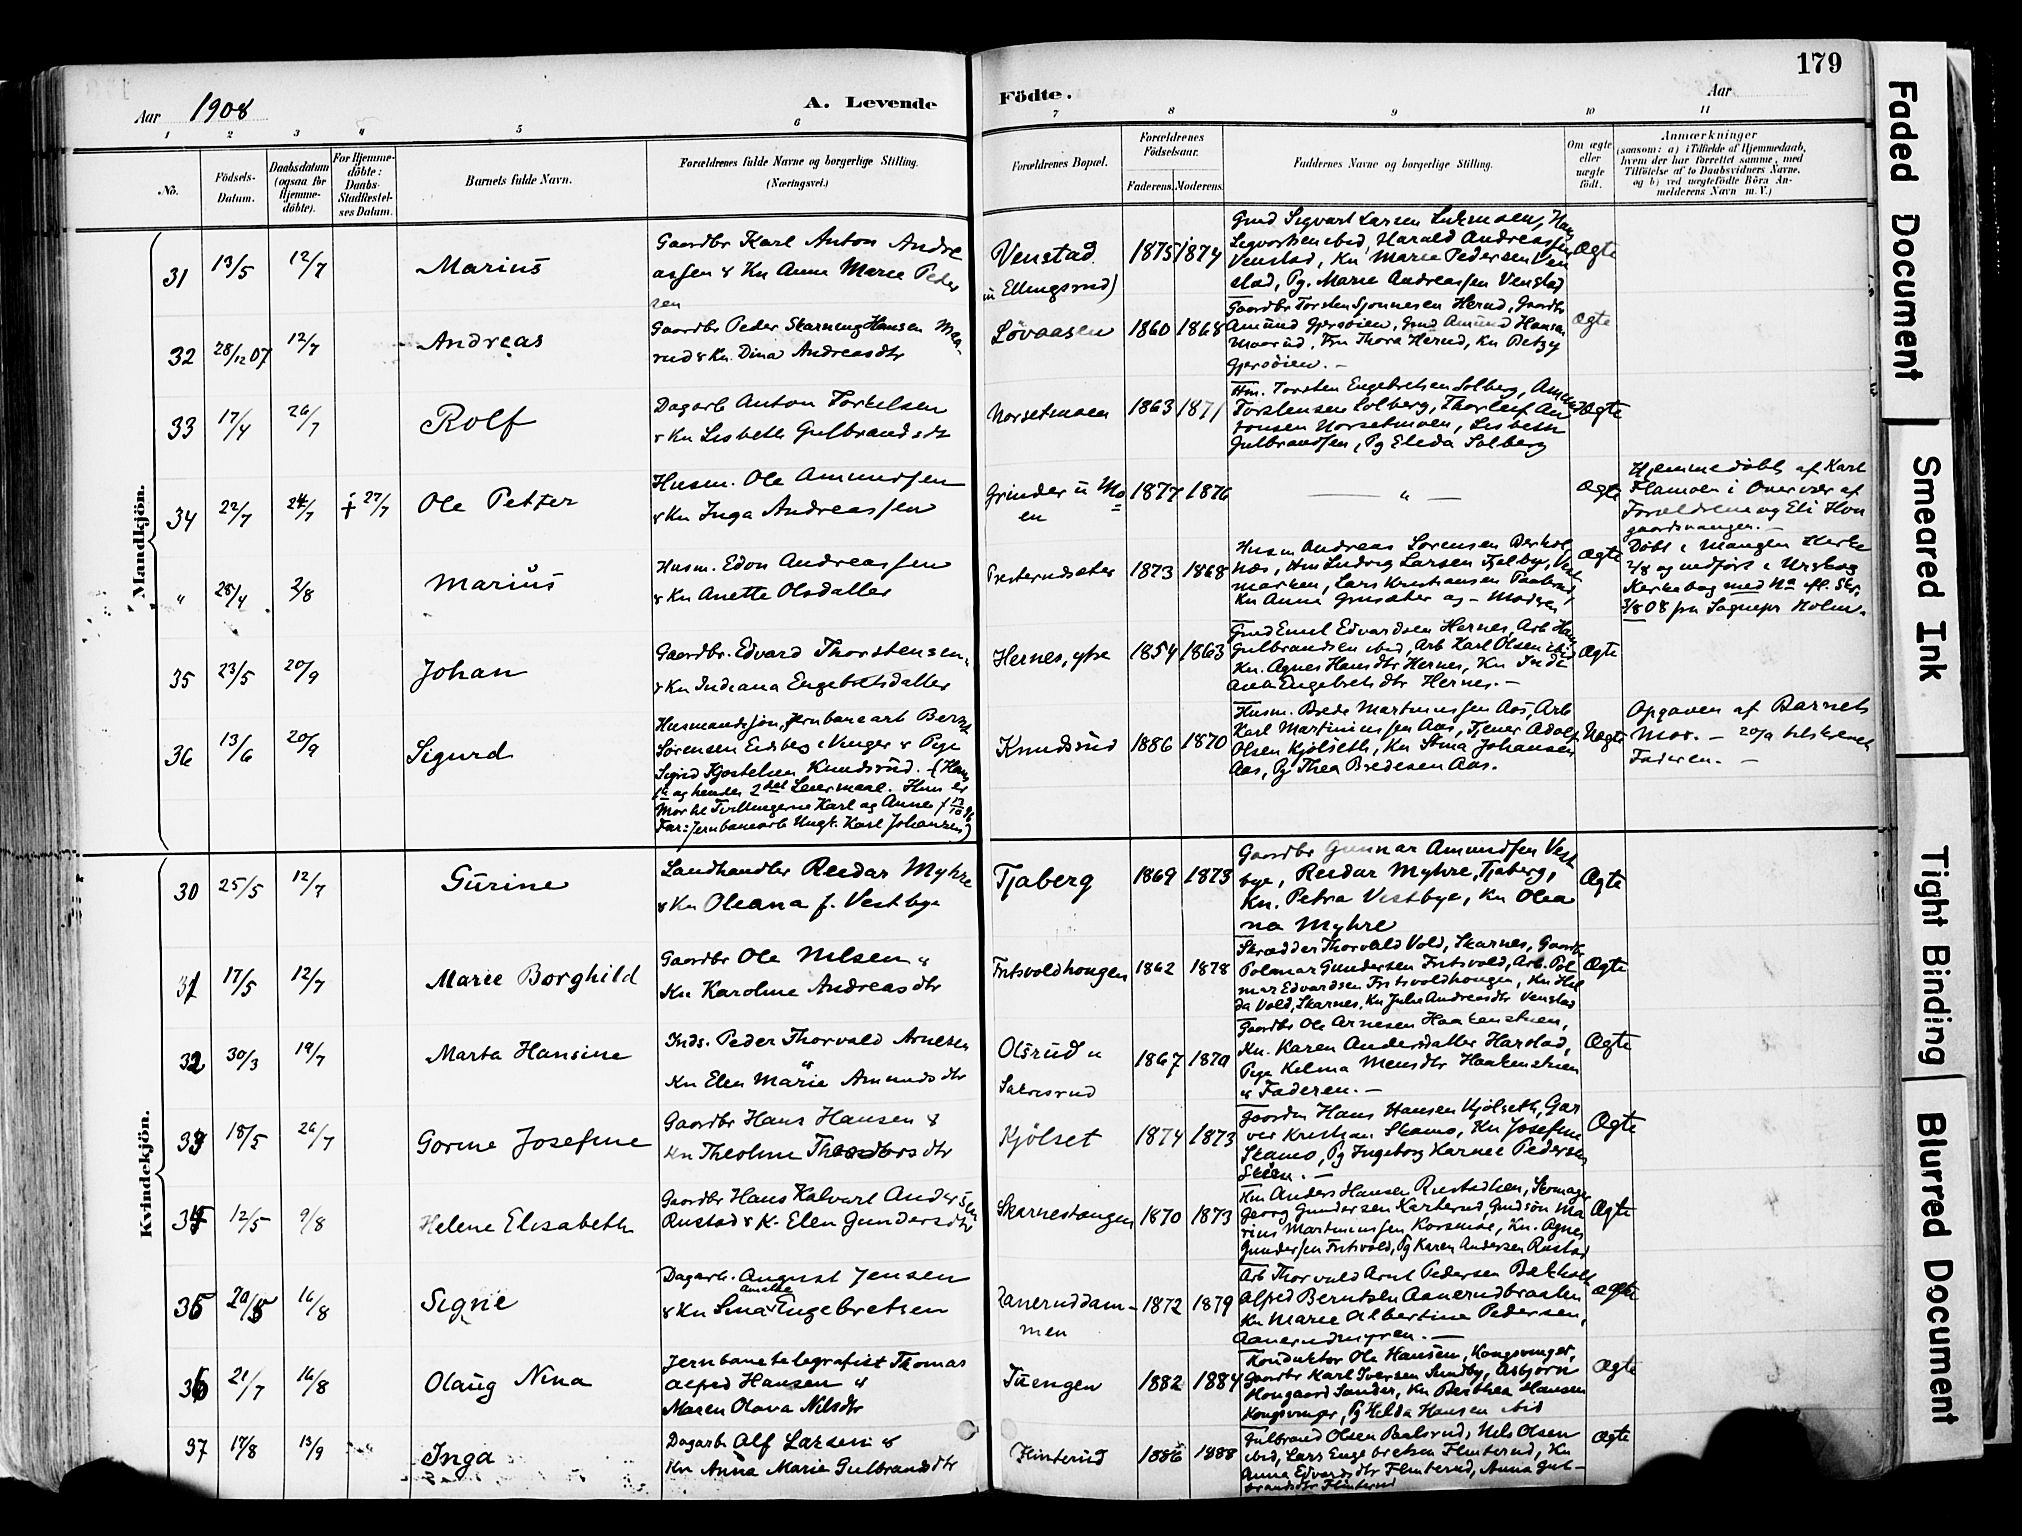 179
Aar 1908
A. Levende Födte.
Aar
1 2 3 4 5 6 7 8 9 10 11
No.
Födsels-Datum.
Daabsdatum (ogsaa for Hjemme-döbte).
For Hjemme-döbte: Daabs-Stadfæstel-ses Datum.
Barnets fulde Navn.
Forældrenes fulde Navne og borgerlige Stilling.
(Næringsvei.)
Forældrenes Bopæl.
Forældrenes Födselsaar.
Faderens. Moderens.
Faddernes Navne og borgerlige Stilling.
Om ægte eller uægte födt.
Anmærkninger
(saasom: a) i Tilfælde af Hjemmedaab,
hvem der har forrettet samme, med
Tilföielse af to Daabsvidners Navne,
og b) ved uægtefödte Börn An-
melderens Navn m. V.)
Mandkjön.
31 13/5 12/7 Marius
Gaardbr Karl Anton Andre
assen & Kn Anna Marie Peder
sen
Venstad
(u Ellingsrud)
1875 1874
Venstad, Kn Marie Pedersen Ven
stad, Pg. Marie Andreassen Venstad
Ægte
32 28/12 07 12/7 Andreas
Gaardbr Peder Skarning Hansen Maa
rud & Kn. Dina Andreasdtr
Løvaasen 1860 1868
Gjersøien. —
Ægte
33 17/4 26/7 Rolf
Dagarb Anton Torkelsen
& Kn Lisbeth Gulbrandsdtr
Norsetmoen 1863 1871
Hm. Torsten Engebretsen Solberg, Amund
Torstensen Solberg, Thorleif An
tonsen Norsetmoen, Lisbeth
Gulbrandsen, Pg Elida Solberg
Ægte
34 22/7 24/7 ÷ 27/7 Ole Petter
Husm. Ole Amundsen
& Kn Inga Andreassen
Grinder u Mo
en
1877 1876
— " —
Ægte
Hjemmedøbt af Karl
Flamoen i Overvær af
Forældrene og Eli Hon
gaardsvangen. —
" 28/4 2/8 Marius
Husm. Edon Andreassen
& Kn Anette Olsdatter
Presterudsæter 1873 1868
Husm Andreas Sørensen
Hm Ludvig Larsen
Ægte
Døbt i Mangen Kirke
2/8 og indført i Urskog
Kirkebog med No eft. Skr.
3/8 08 fra Sognepr Holm.
35 23/5 20/9 Johan
Gaardbr. Edvard Thorstensen
& Kn Indiana Engebretsdatter
Hernes, ytre 1854 1863
Gmd Emil Edvardsen Hernes, Arb Hans
Gulbrandsen ibid, Arb Karl Olsen ibid
Kn. Agnes Hansdtr Hernes, Kn Indi
ana Engebretsdtr Hernes. —
Ægte
36 13/6 20/9 Sigurd
Husmandssøn, Jernbanearb Bernt
Sørensen Eidberg i Vinger & Pige
Sigrid Kjostelsen Knudsrud. (Hans
1ste og hendes 2det Leiermaal. Hun er
Mor til Tvillingerne Karl og Anne
Far: Jernbanearb Ungk. Karl Johansen)
Knudsrud 1886 1870
Husm. Brede Martinussen Aas, Arb
Karl Martiniussen Aas, Tjener Adolf
Olsen Kjölseth, Kn Stina Johansen
Aas, Pg Thea Bredesen Aas.
Uægte
Opgaven af Barnets
Mor. — 20/9 tilskrevet
Faderen. —
Kvindekjön.
30 25/5 12/7 Gurine
Landhandler Reidar Myhre
& Kn Oleana f. Vestbye
Tjaberg 1869 1873
Gaardbr Gunnar Amundsen Vest
bye, Reidar Myhre, Tjaberg,
Kn. Petra Vestbye, Kn Olea
na Myhre
Ægte
31 17/5 12/7 Marie Borghild
Gaardbr Ole Nilsen &
Kn Karoline Andreasdtr
Fritsvoldhougen 1862 1878
Skrædder Thorvald Vold, Skarnes, Gaardbr
Polmar Gundersen Fritsvold, Arb. Pol
mar Edvardsen Fritsvoldhougen, Kn Hil
da Vold, Skarnes, Kn Julie Andreasdtr Venstad
Ægte
32 30/3 19/7 Marta Hansine
Inds. Peder Thorvald Arnesen
&
Kn Elen Marie Amundsdtr
Olsrud u
1867 1870
Gaardbr Ole Arnesen Haakenstuen,
Kn. Karen Andersdatter Harstad,
Pige Helma Mensdtr Haakenstuen
& Faderen. —
Ægte
33 18/5 26/7 Gorine Josefine
Gaardbr Hans Hansen &
Kn Theoline Theodorsdtr
Kjölset 1874 1873
Gaardbr Hans Hansen Kjölseth, Gar
ver Kristian Skamo, Kn Josefine
Skamo, Pg Ingeborg Karnee Pedersen
Ægte
34 12/5 9/8 Helene Elisabeth
Gaardbr Hans Halvart Andersen
Rustad & K. Elen Gundersdtr
Skarnestangen 1870 1873
Hm Anders Hansen Rustadhen, Skomager
Georg Gundersen Karterud, Gmdsøn Ma
rius Martinussen Korsmoe, Kn. Agnes
Gundersen Fritsvold, Pg Karen Andersen Rustad
Ægte
35 20/5 16/8 Signe
Dagarb. August Jensen
& Kn Sina Amalie Engebretsen
Aaneruddam-
men
1872 1879
Arb Thorvald Arnt Pedersen Bækholt
Alfred Berntsen Aanerudbraaten
Kn Marie Albertine Pedersen,
Aanerudmyren. —
Ægte
36 21/7 16/8 Olaug Nina
Jernbanetelegrafist Thomas
Alfred Hansen &
Maren Olava Nilsdtr
Tuengen 1882 1884
Konduktør Ole Hansen, Kongsvinger,
Gaardbr Karl Iversen Sundby, Asbjørn
Hongaard Sander, Kn Berthea Hansen
Kongsvinger, Pg Hilda Hansen ibid
Ægte
37 17/8 13/9 " Inga
Dagarb Alf Larsen &
Kn Anna Marie Gulbrandsdtr
Flinterud 1886 1888
Gulbrand Olsen Paalsrud, Nils Olsen
ibid, Lars Engebretsen Flinterud, Kn
Anna Edvardsdtr Flinterud, Anna Gul-
brandsdtr Flinterud
Ægte
Faded Document
Smeared Ink
Tight Binding
Blurred Document